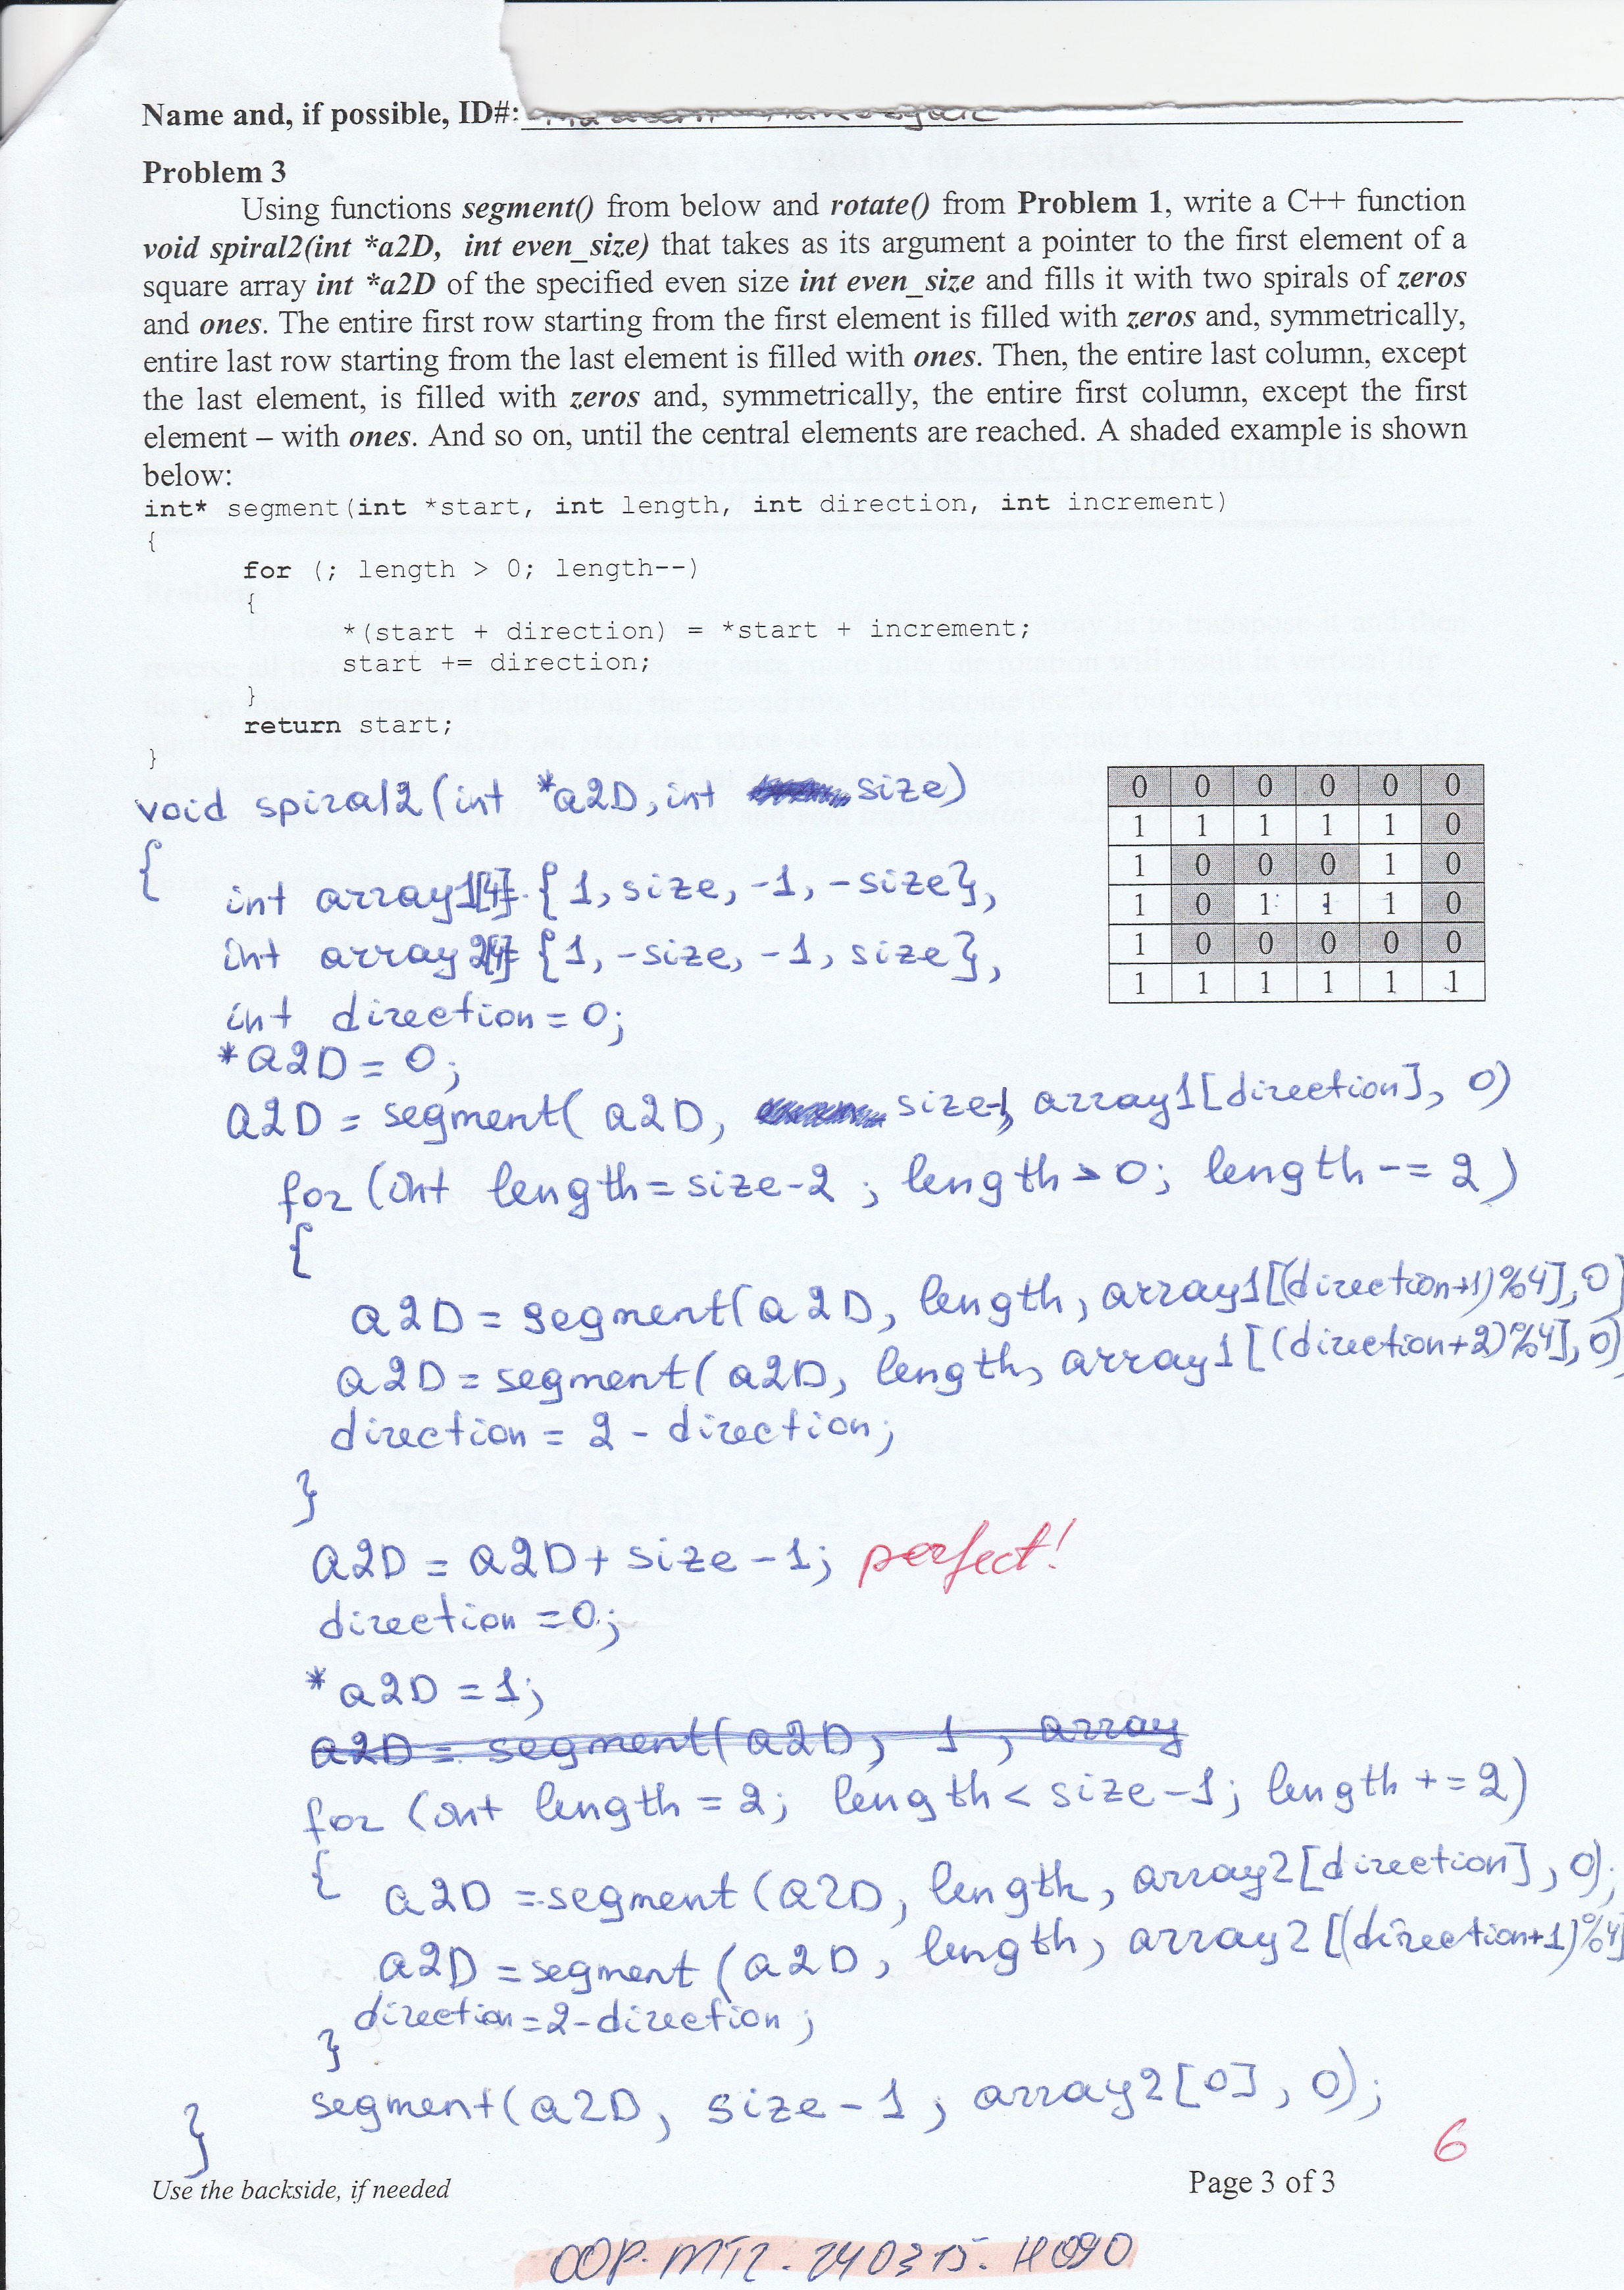 Name and, if possible, ID#:
Problem 3
Using functions segment() from below and rotate() from Problem 1, write a C++ function
void spiral2(int *a2D, int even_size) that takes as its argument a pointer to the first element of a
square array int *a2D of the specified even size int even_size and fills it with two spirals of zeros
and ones. The entire first row starting from the first element is filled with zeros and, symmetrically,
entire last row starting from the last element is filled with ones. Then, the entire last column, except
the last element, is filled with zeros and, symmetrically, the entire first column, except the first
element – with ones. And so on, until the central elements are reached. A shaded example is shown
below:
int* segment(int *start, int length, int direction, int increment)
{
for (; length > 0; length--)
{
*(start + direction) = *start + increment;
start += direction;
}
return start;
}
0 0 0 0 0 0
1 1 1 1 1 0
1 0 0 0 1 0
1 0 1 1 1 0
1 0 0 0 0 0
1 1 1 1 1 1
void spiral2(int *a2D, int size)
{
int array1[4]= {1, size, -1, -size},
int array2[4]= {1, -size, -1, size},
int direction = 0;
*a2D = 0;
a2D = segment( a2D, size-1, array1[direction], 0)
for (int length = size-2 ; length > 0; length -= 2)
{
a2D = segment(a2D, length, array1[(direction+1)%4],0)
a2D = segment(a2D, length, array1[(direction+2)%4],0)
direction = 2 - direction;
}
a2D = a2D + size - 1; perfect!
direction = 0;
*a2D = 1;
a2D = segment(a2D, 1, array
for (int length = 2; length < size-1; length += 2)
{ a2D = segment (a2D, length, array2[direction], 0);
a2D = segment (a2D, length, array2[(direction+1)%4]
direction = 2-direction;
}
segment(a2D, size-1, array2[0], 0);
}
6
Use the backside, if needed
Page 3 of 3
OOP. MT2. 240315. H090